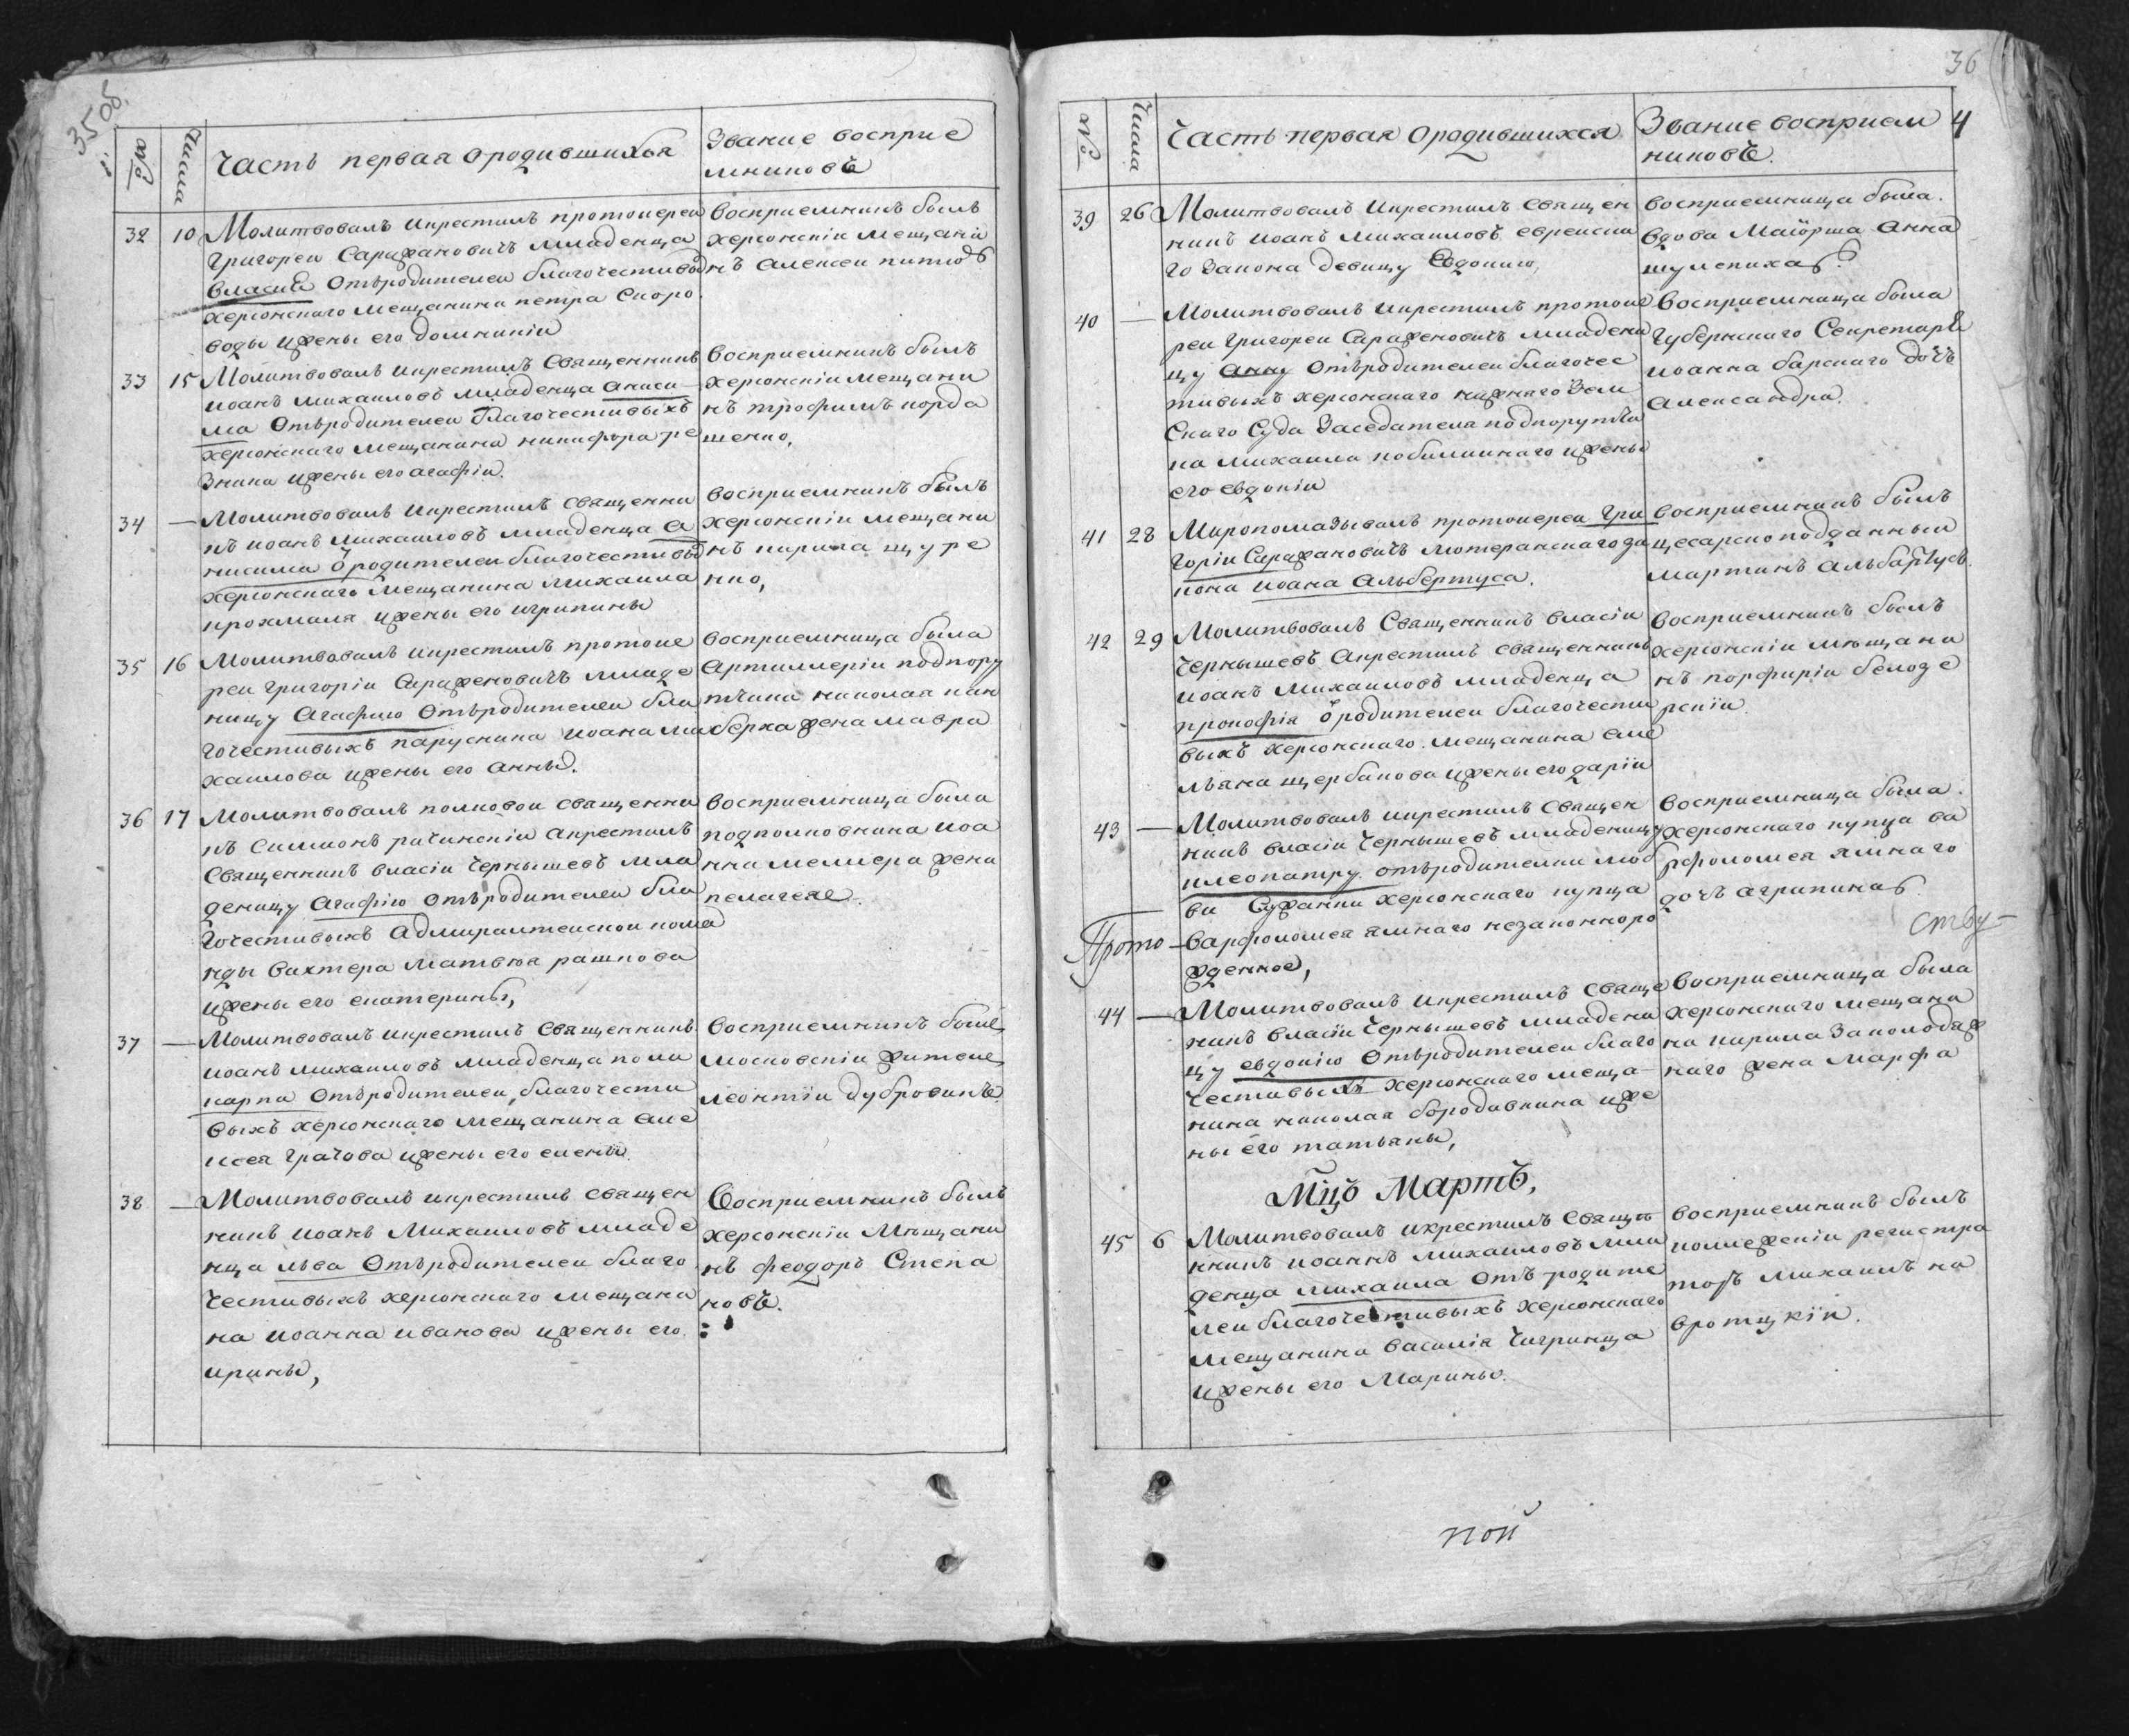 35об.
№
Числа
Часть первая ородившихся
Звание восприе
мниковъ
32
10
Молитвовалъ икрестилъ протоиереи
Григореи Сараѳановичъ младенца
власия Отъродителеи благочестивых
херсонскаго мещанина петра Скоро
воды ижены его домникіи
восприемникъ былъ
херсонскіи мещани
нъ алексеи питювъ
33
15
Молитвовалъ икрестилъ Священникъ
иоанъ михаиловъ младенца аниси
ма Отъродителеи благочестивыхъ
херсонскаго мещанина никифора ре
зника ижены его агафіи.
восприемникъ былъ
херсонскіи мещани
нъ трофимъ корда
шенко,
34
—
Молитвовалъ икрестилъ священни
къ иоанъ михаиловъ младенца а
нисима ѿродителеи благочестивых
херсонскаго мещанина михаила
крохмаля ижены его игрипины
восприемникъ былъ
херсонскіи мещани
нъ кирила щуре
нко,
35
16
Молитвовалъ икрестилъ протоие
реи григоріи Сараженовичъ младе
ницу агафию Отъродителеи бла
гочестивыхъ парусника иоана ми
хаилова ижены его анны.
восприемница была
артиллеріи подпору
тчика николая кан
берха жена мавра
36
17
Молитвовалъ полковои священни
къ симионъ рачинскіи акрестилъ
Священникъ власіи чернышевъ мла
деницу агафію Отъродителеи бла
гочестивыхъ адмиралтеискои кома
нды вахтера матвѣя рашкова
ижены его екатерины,
восприемница была
подполковника иоа
нна меллера жена
пелагея.
37
—
Молитвовалъ икрестилъ священникъ
иоанъ михаиловъ младенца поли
карпа Отъродителеи, благочести
выхъ херсонскаго мещанина але
ксея грачова ижены его елены.
восприемникъ былъ
московскіи житель
леонтіи дубровинъ
38
—
Молитвовалъ икрестилъ священ
никъ иоанъ Михаиловъ младе
нца льва Отъродителеи благо
честивыхъ херсонскаго мещани
на иоанна иванова ижены его
ирины,
Восприемникъ былъ
херсонскіи Мѣщани
нъ феодоръ Степа
новъ.
36
4
№
Числа
Часть первая ородившихся
Звание восприем
никовъ.
39
26
Молитвовалъ икрестилъ священ
никъ иоанъ михаиловъ евреиска
го закона девицу Евдокию,
восприемница была.
вдова Маіорша анна
шулепиха.
40
—
Молитвовалъ икрестилъ протоие
реи григореи Сараженовичъ младени
цу анну Отъродителеи благочес
тивыхъ херсонскаго нижнего Зем
Скаго Суда Заседателя подпорутчи
ка михаила кобилинкаго ижены
его евдокіи
восприемница была
губернскаго Секретаря
иоанна барскаго дочъ
александра.
41
28
Миропомазывалъ протоиереи гри
горіи Сараѳановичъ лютеранскаго за
кона иоана альбертуса.
восприемникъ былъ
цесарско подданныи
мартинъ альбартусъ.
42
29
Молитвовалъ Священникъ власіи
чернышевъ акрестилъ священникъ
иоанъ михаиловъ младенца
прокофія ѿродителеи благочести
выхъ херсонскаго мещанина еме
льяна щербакова ижены его даріи
восприемникъ былъ
херсонскіи мѣщани
нъ порфиріи белозе
рскіи.
43
—
Молитвовалъ икрестилъ священ
никъ власіи чернышевъ младеницу
клеопатру. отъродителки люб
ви Сужанки херсонскаго купца
варфоломея ямнаго незаконноро
жденное,
восприемница была.
херсонскаго купца ва
рфоломея ямнаго
дочъ агрипина.
Прото—
ству—
44
—
Молитвовалъ икрестилъ свяще
никъ власіи чернышевъ младени
цу евдокію Отъродителеи благо
честивыхъ херсонскаго меща
нина николая бородавкина иже
ны его татьяны,
восприемница была
херсонскаго мещани
на кирила Заколодяж
наго жена марфа
Мцъ Мартъ,
45
6
Молитвовалъ икрестилъ Свяще
нникъ иоаннъ михаиловъ мла
денца михаила Отъ родите
леи благочестивыхъ херсонскаго
мещанина василія чигринца
ижены его Марины.
восприемникъ былъ
коллежскіи регистра
торъ михаилъ на
вротцкіи.
пой